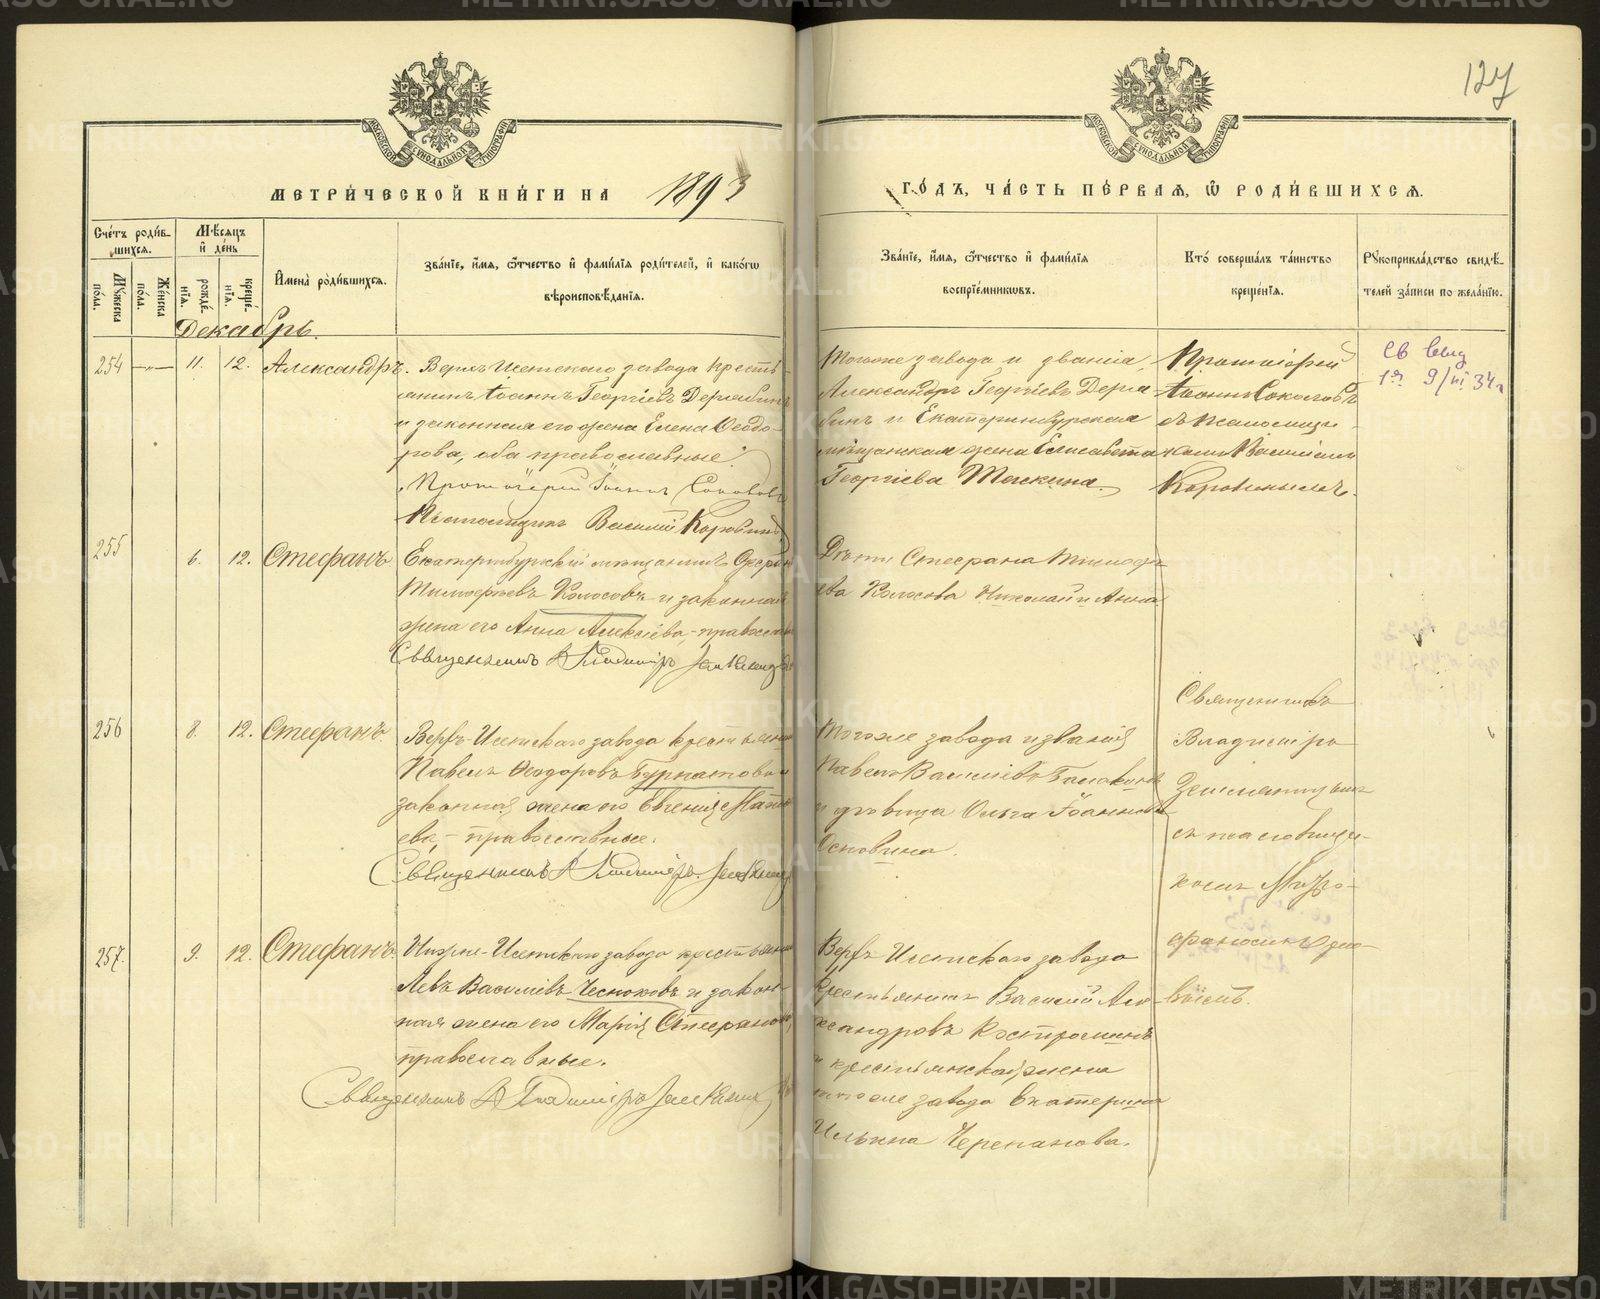 127
МЕТРИ́ЧЕСКОЙ КНИ́ГИ НА 1893 ГО́ДЪ, ЧА́СТЬ ПЕ́РВАЯ, Ѡ РОДИ́ВШИХСЯ.
МОСКОВСКОЙ СѴНОДАЛЬНОЙ ТИПОГРАФІИ
МОСКОВСКОЙ СѴНОДАЛЬНОЙ ТИПОГРАФІИ
Сче́тъ роди́в-
шихся.
Му́жеска
по́ла.
Же́нска
по́ла.
Мѣ́сяцъ
и҆ де́нь
рожде́-
нїѧ.
креще́-
нїѧ.
И҆мена̀ роди́вшихсѧ.
Зва́нїе, и҆́мѧ, ѻ҆́тчество и҆ фами́лїѧ роди́телей, и҆ како́гѡ
вѣроисповѣ́данїѧ.
Зва́нїе, и҆́мѧ, ѻ҆́тчество и҆ фами́лїѧ
воспрїе́мникѡвъ.
Кто̀ соверша́лъ та́инство
креще́нїѧ.
Рꙋкоприкла́дство свидѣ́-
телей за́писи по жела́нїю.
Декабрь.
254 —„— 11. 12. Александръ.
Верхъ Исетскаго завода кресть-
янинъ Іоаннъ Георгіевъ Дерябинъ
и законная его жена Елена Ѳеодо-
рова, оба православные
Протоіерей Іоаннъ Соколовъ
Псаломщикъ Василій Коровинъ
Тогоже завода и званія
Александръ Георгіевъ Деря-
бинъ и Екатеринбургская
мѣщанская жена Елисавета
Георгіева
Протоіерей
Іоаннъ Соколовъ
съ псаломщи-
комъ Василіемъ
Коровинымъ.
9/III 34г
255 6. 12. Стефанъ
Екатеринбургскій мѣщанинъ Стефанъ
Тимофѣевъ Колосовъ и законная
жена его Анна Алексѣева, - православ
Священникъ Владиміръ Земляницынъ
Дѣти Стефана Тимофѣ-
ева Колосова Николай и Анна
256 8. 12. Стефанъ.
Верхъ-Исетскаго завода крестьянинъ
Павелъ Ѳеодоровъ Бурматовъ и
законная жена его Евгенія Матѳ
ева, - православные.
Священникъ Владиміръ Земляницынъ
Тогоже завода и званія
Павелъ Василіевъ Балакинъ
и дѣвица Ольга Іоаннова
Основина.
Священникъ
Владиміръ
Земляницынъ
съ псаломщи-
комъ Митро-
фаномъ
257. 9. 12. Стефанъ.
Нижне-Исетскаго завода крестьянинъ
Левъ Василіевъ Чесноковъ и закон-
ная жена его Марія Стефанова,
православные.
Священникъ Владиміръ Земляницынъ
Верхъ Исетскаго завода
крестьянинъ Василій Але-
ксандровъ Костроминъ
и крестьянская жена
тогоже завода Екатерина
Ильина Черепанова.
METRIKI.GASO-URAL.RU